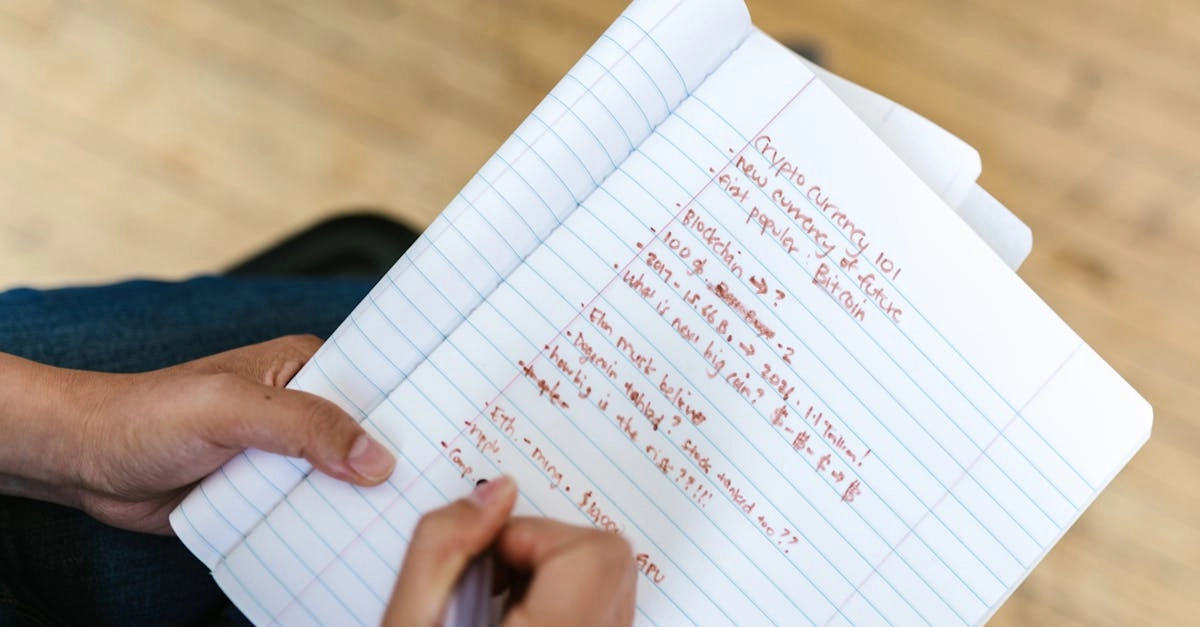 Crypto currency 101
- new currency of future
- first populer : Bitcoin
- Blockchain → ?
- 100 $.
- 2017 - 15.66 B. → 2021. 1.1 Trillion!
- what is next big coin? $ - $ - $ → $
- Elon musk believe
- Dogecoin tanked? Stock tanked too??
- how big is the risk???!!!
- Eth. - ming. $1000
- ripple.
Comp. GPU